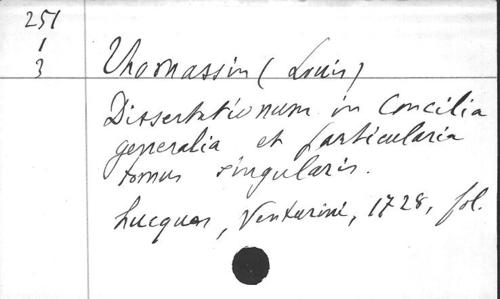 251
1
3
Thomassin (Louis)
Dissertationum in Concilia
generalia et particularia
tomus singularis.
Lucques, Venturini, 1728, fol.